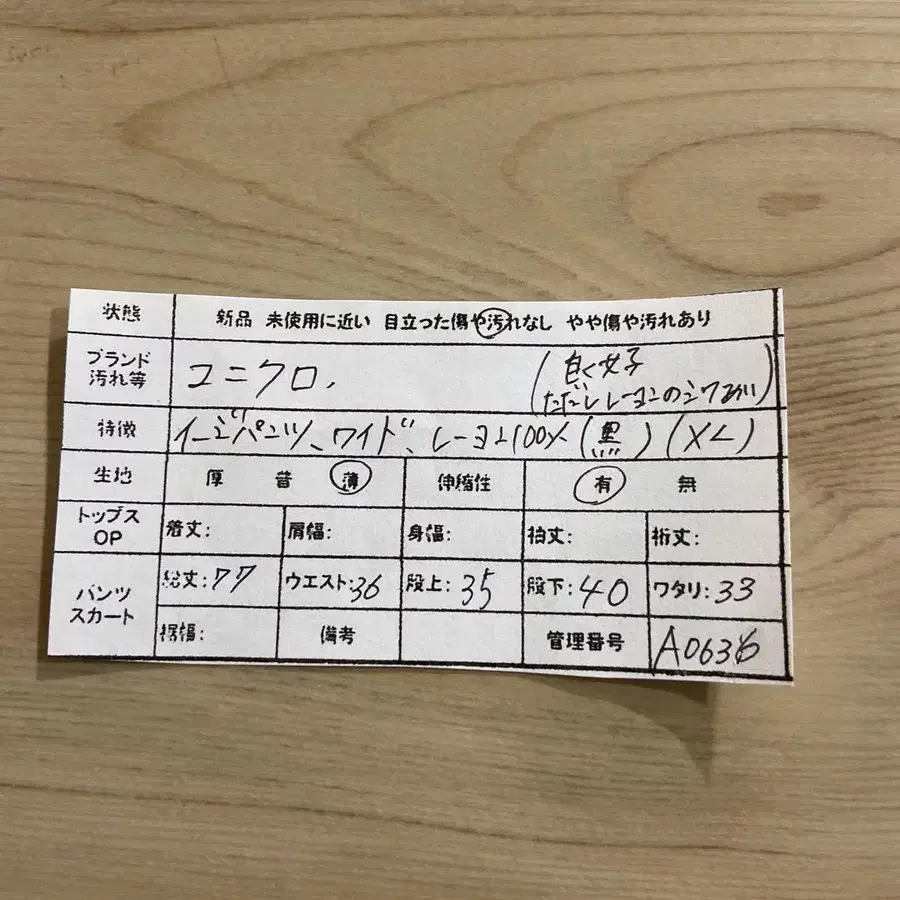 状態 新品 未使用に近い 目立った傷や汚れなし やや傷や汚れあり
ブランド 汚れ等 ユニクロ、 (良く女子
ただしレーヨンのシワあり)
特徴 イージーパンツ、ワイド、レーヨン100% (黒) (XL)
生地 厚 普 薄 伸縮性 有 無
トップス OP 着丈: 肩幅: 身幅: 袖丈: 裄丈:
パンツ スカート 総丈:77 ウエスト:36 股上:35 股下:40 ワタリ:33
裾幅: 備考 管理番号 A0636